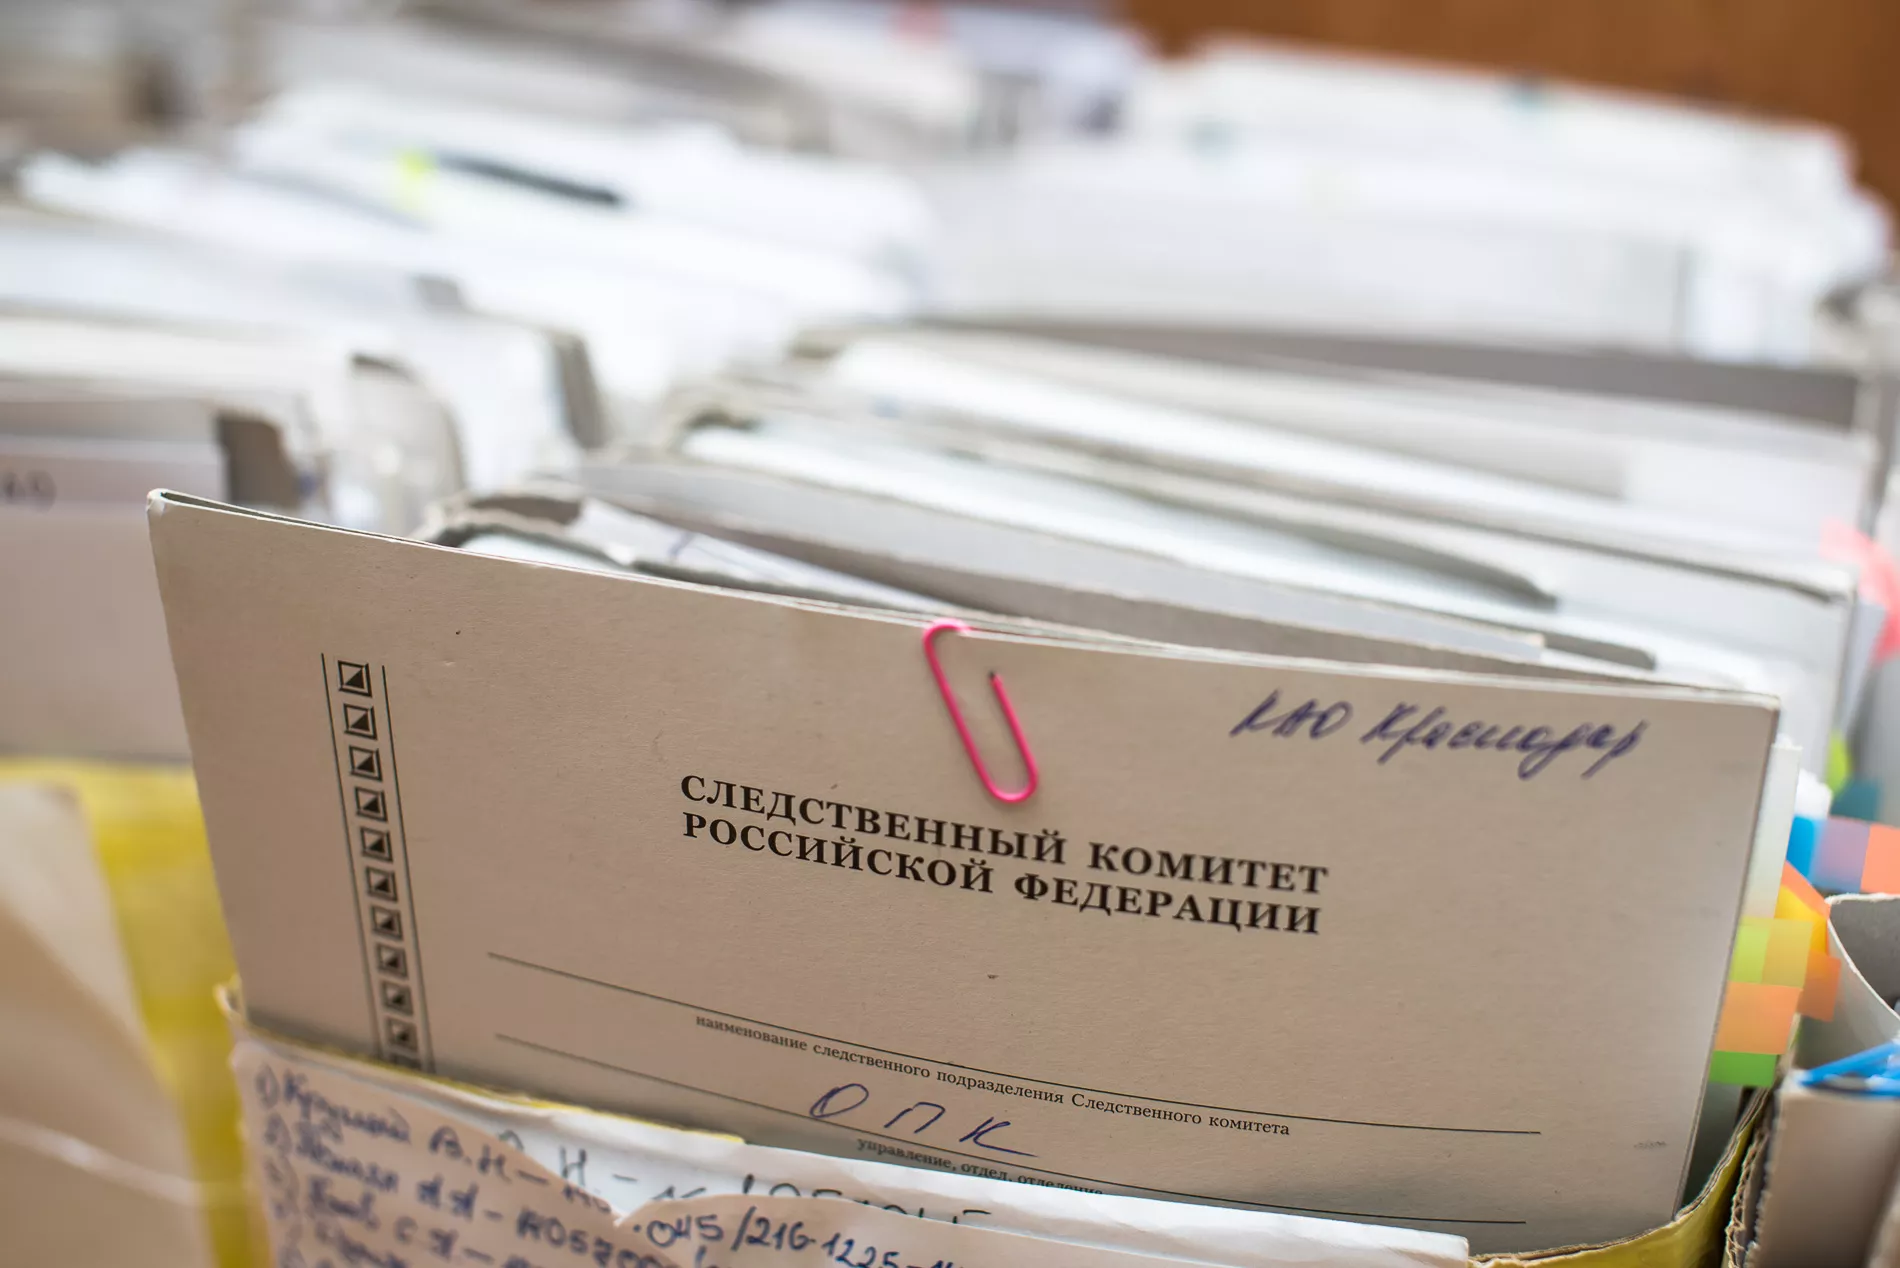 КАО Краснодар
СЛЕДСТВЕННЫЙ КОМИТЕТ
РОССИЙСКОЙ ФЕДЕРАЦИИ
наименование следственного подразделения Следственного комитета
ОПК
управление, отдел, отделение
1) В.Н –
2) А А –
С А –
.045/216-1225-